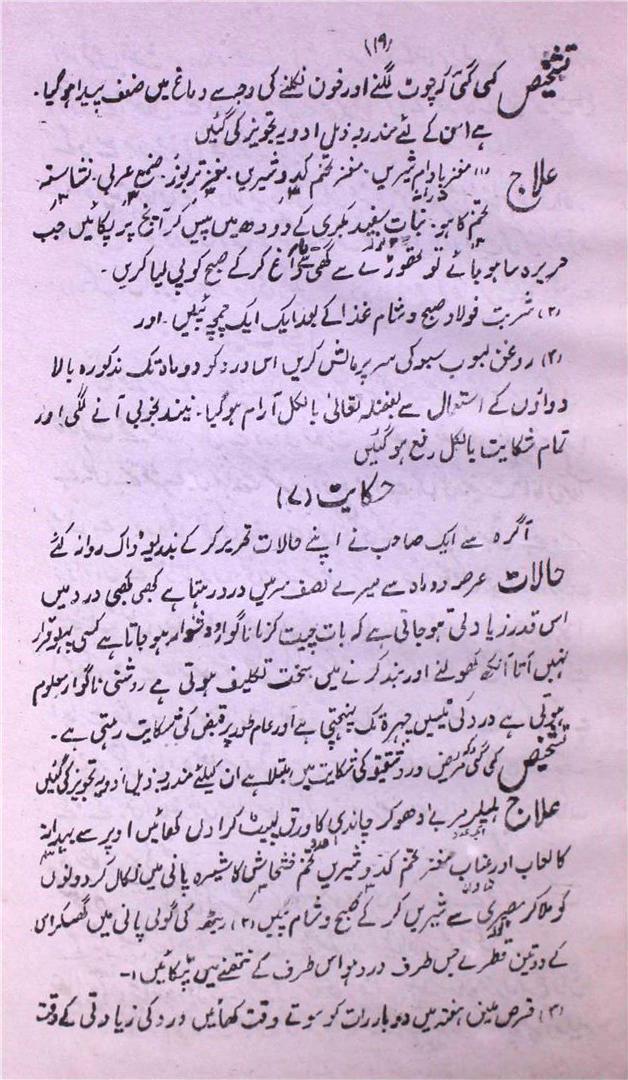 (۱۹)
تشخیص کی گئی کہ چوٹ لگنے اور خون نکلنے کی وجہ سے دماغ میں ضعف پیدا ہو گیا۔
ہے اس کے لئے مندرجہ ذیل ادویہ تجویز کی گئیں
علاج (۱) مغز بادام شیریں۔ مغز تخم کدو شیریں۔ مغز تربوز۔ صمغ عربی۔ نشاستہ۔
تخم کاہو۔ نبات سفید بکری کے دودھ میں پیس کر آنچ پر پکائیں جب
حریرہ سا ہو جائے تو تھوڑے سے گھی سے داغ کر کے صبح کو پی لیا کریں۔
(۲) شربت فولاد صبح و شام غذا کے بعد ایک ایک چمچہ پئیں۔ اور
(۳) روغن لبوب سبعہ کی سر پر مالش کریں اس درد کو دو ماہ تک مذکورہ بالا
دواؤں کے استعمال سے بفضلہ تعالیٰ بالکل آرام ہو گیا۔ نیند بخوبی آنے لگی اور
تمام شکایت بالکل رفع ہو گئیں
حکایت (۷)
آگرہ سے ایک صاحب نے اپنے حالات تحریر کر کے بذریعہ ڈاک روانہ کئے
حالات عرصہ دراز سے میرے نصف سر میں درد رہتا ہے کبھی کبھی درد میں
اس قدر زیادتی ہو جاتی ہے کہ بات چیت کرنا ناگوار و دشوار ہو جاتا ہے کسی پہلو قرار
نہیں آتا آنکھ کھولنے اور بند کرنے میں سخت تکلیف ہوتی ہے روشنی ناگوار معلوم
ہوتی ہے درد کی ٹیسیں چہرہ تک پہنچتی ہے اور عام طور پر قبض کی شکایت رہتی ہے۔
تشخیص کی گئی کہ مریض درد شقیقہ کی شکایت میں مبتلا ہے ان کیلئے مندرجہ ذیل ادویہ تجویز کی گئیں
علاج ہلیلہ مربےٰ دھو کر چاندی کا ورق لپیٹ کر اول کھائیں اوپر سے بہیدانہ
کا لعاب اور عناب مغز تخم کدو شیریں تخم خشخاش کا شیرہ پانی میں نکال کر دونوں
کو ملا کر مصری سے شیریں کر کے صبح و شام پئیں (۲) ریٹھہ کی گولی پانی میں گھسکر اس
کے دو تین قطرے جس طرف درد ہو اس طرف کے نتھنے میں ٹپکائیں۔
(۳) قرص ملین ہفتہ میں دو بار رات کو سوتے وقت کھائیں درد کی زیادتی کے وقت